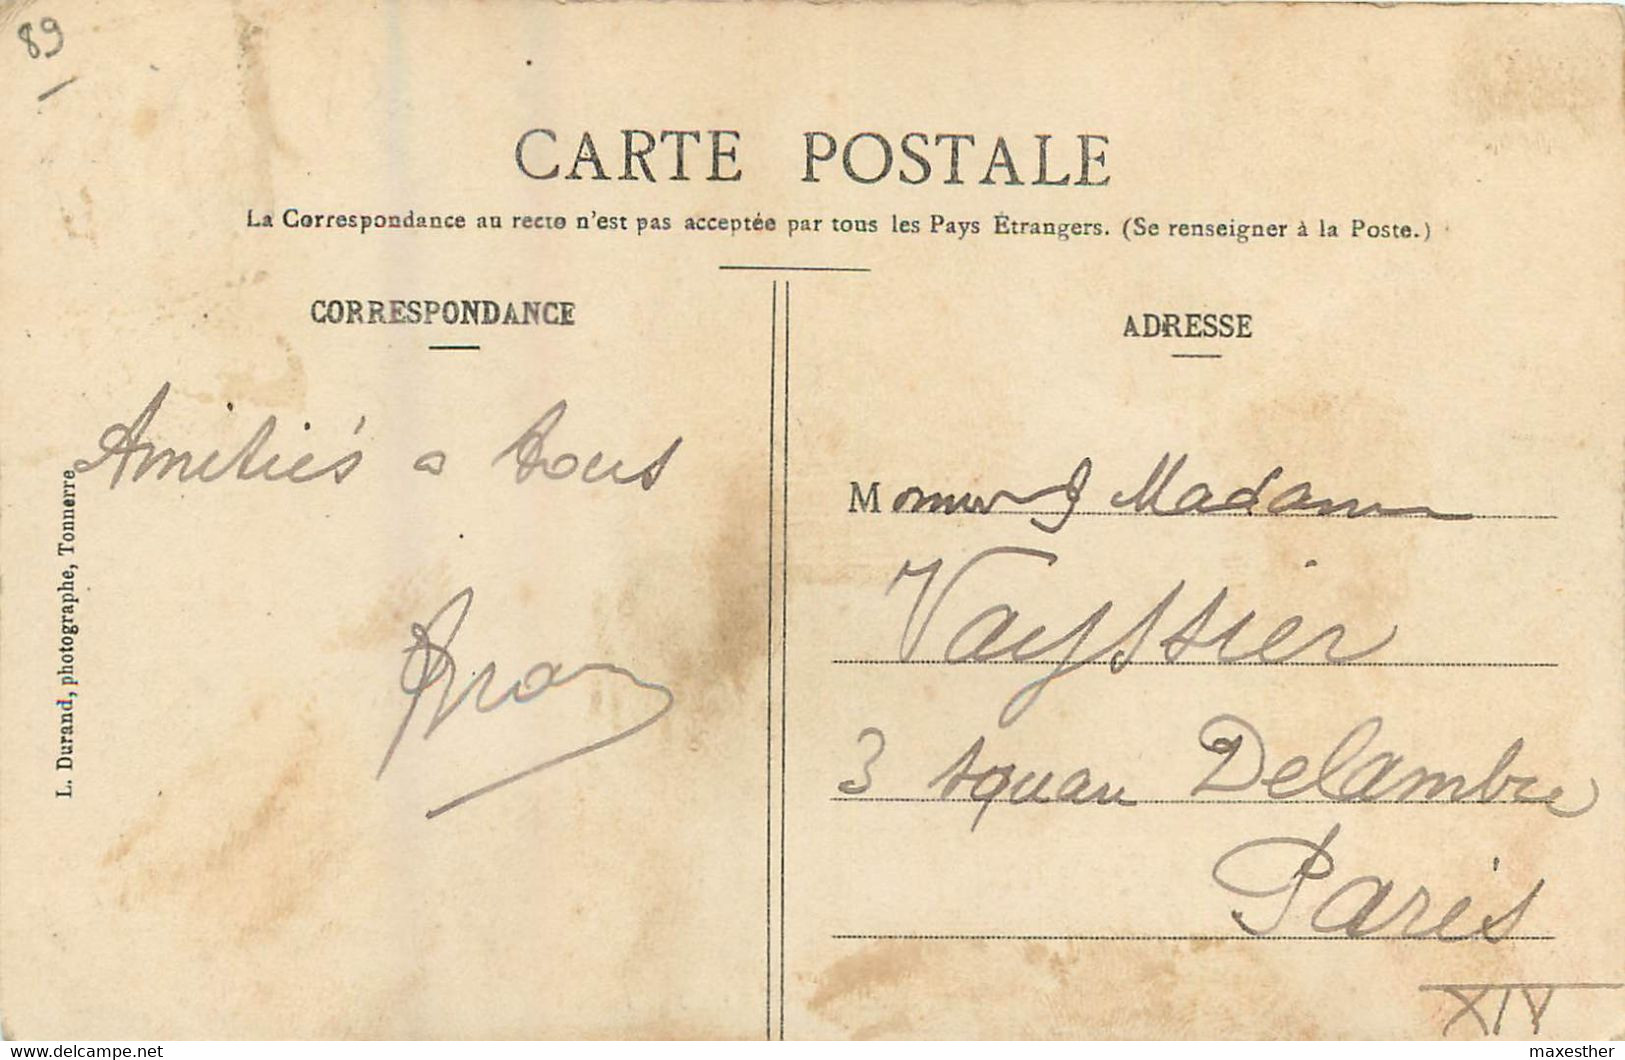 89
CARTE POSTALE
La Correspondance au recto n'est pas acceptée par tous les Pays Étrangers. (Se renseigner à la Poste.)
CORRESPONDANCE
Amitiés a tous
L. Durand, photographe, Tonnerre
ADRESSE
Monsieur & Madame
Vayssier
3 square Delambre
Paris
XIV
maxesther